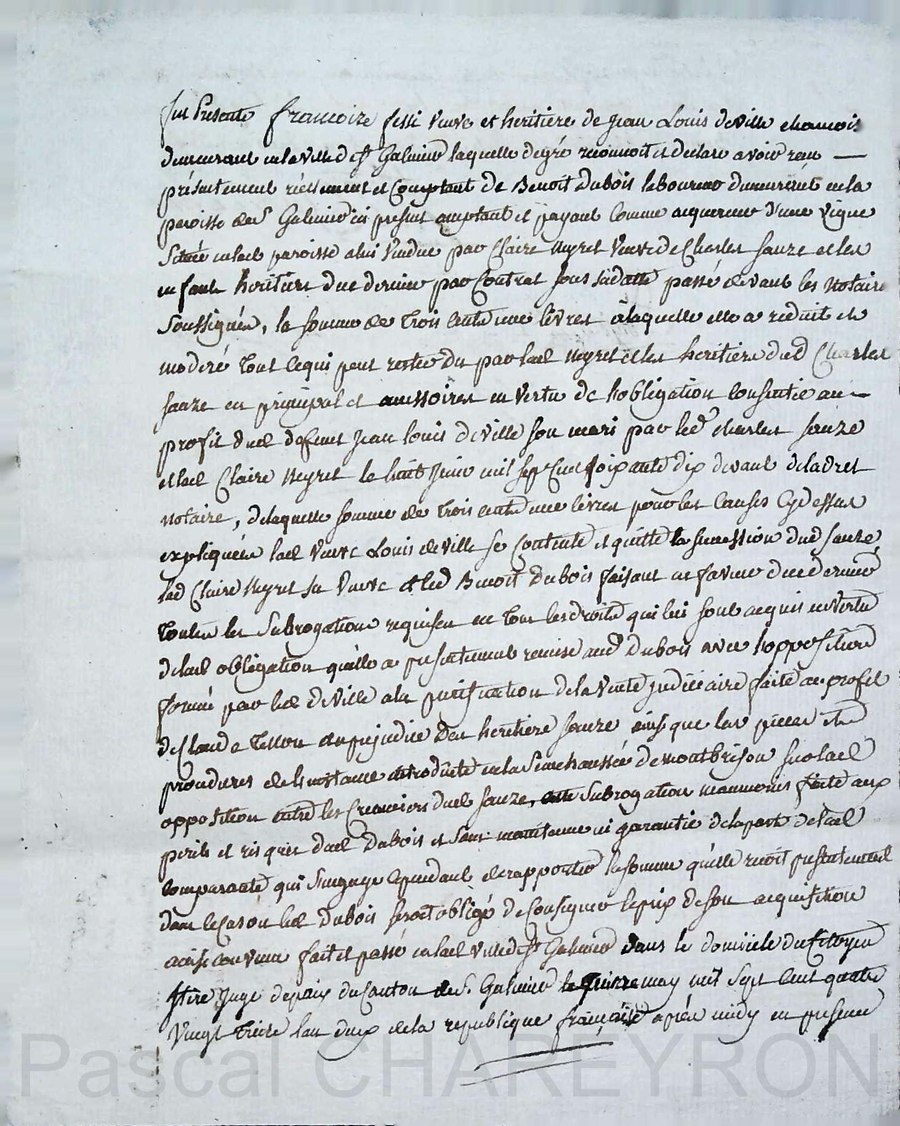 fut Presente francoise fessi veuve et heritiere de Jean Louis deville chamois
demeurant en la ville de st Galmier laquelle de gré reconnoit et declare avoir reçu —
présentement réellement et Comptant de Benoit Dubois laboureur demeurant en la
paroisse de st Galmier ici présent acceptant et payant comme acquereur d'une vigne
Située en lad paroisse a lui vendue par Claire Neyret veuve de Charles sauze et les
enfants héritiers du dernier par Contrat sous sa datte passé devant les notaires
Soussignés, la somme de trois cents une livres à laquelle elle a réduit et
modéré tout ce qui peut rester du par lad Neyret et les heritiers dud Charles
sauze en principal et accessoires en vertu de l'obligation consentie au —
profit dud defunt Jean Louis deville son mari par led charles sauze
et lad Claire Neyret le huit Juin mil sept cent soixante dix devant
notaire, de laquelle somme de trois cents une livres pour les causes cy dessus
expliquées lad veuve Louis deville se contente et quitte la succession dud sauze,
lad Claire Neyret sa veuve et led Benoit Dubois faisant en faveur du dernier
toutes les subrogations requises en tous les droits qui lui sont acquis en vertu
de lad obligation qu'elle a présentement remise aud Dubois avec l'opposition
formée par led deville a la purification de la vente judiciaire faite au profit
de Claude tellon au préjudice des heritiers sauze ainsi que les pieces et
procedures de l'instance introduite en la Senechaussée de montbrison sur lad
opposition entre les Creanciers dud sauze, cette subrogation neanmoins faite aux
perils et risques dud Dubois et sans maintenue ni garantie de la part de lad
comparante qui s'engage cependant de rapporter la somme qu'elle reçoit présentement
dans le cas où led Dubois seroit obligé de consigner le prix de son acquisition
ainsi convenu fait et passé en lad ville de st Galmier dans le domicile du Citoyen
Juge de paix du Canton de st Galmier le quinze may mil sept cent quatre
vingt treize l'an deux de la république française après midy en presence
Pascal CHAREYRON